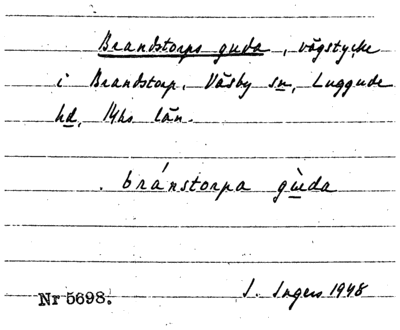 Brandstorps guda, vägstycke
i Brandstorp, Väsby sn, Luggude
hd, Mhs län.
bránstorpa gùda
Nr 5698.
I. Ingers 1948